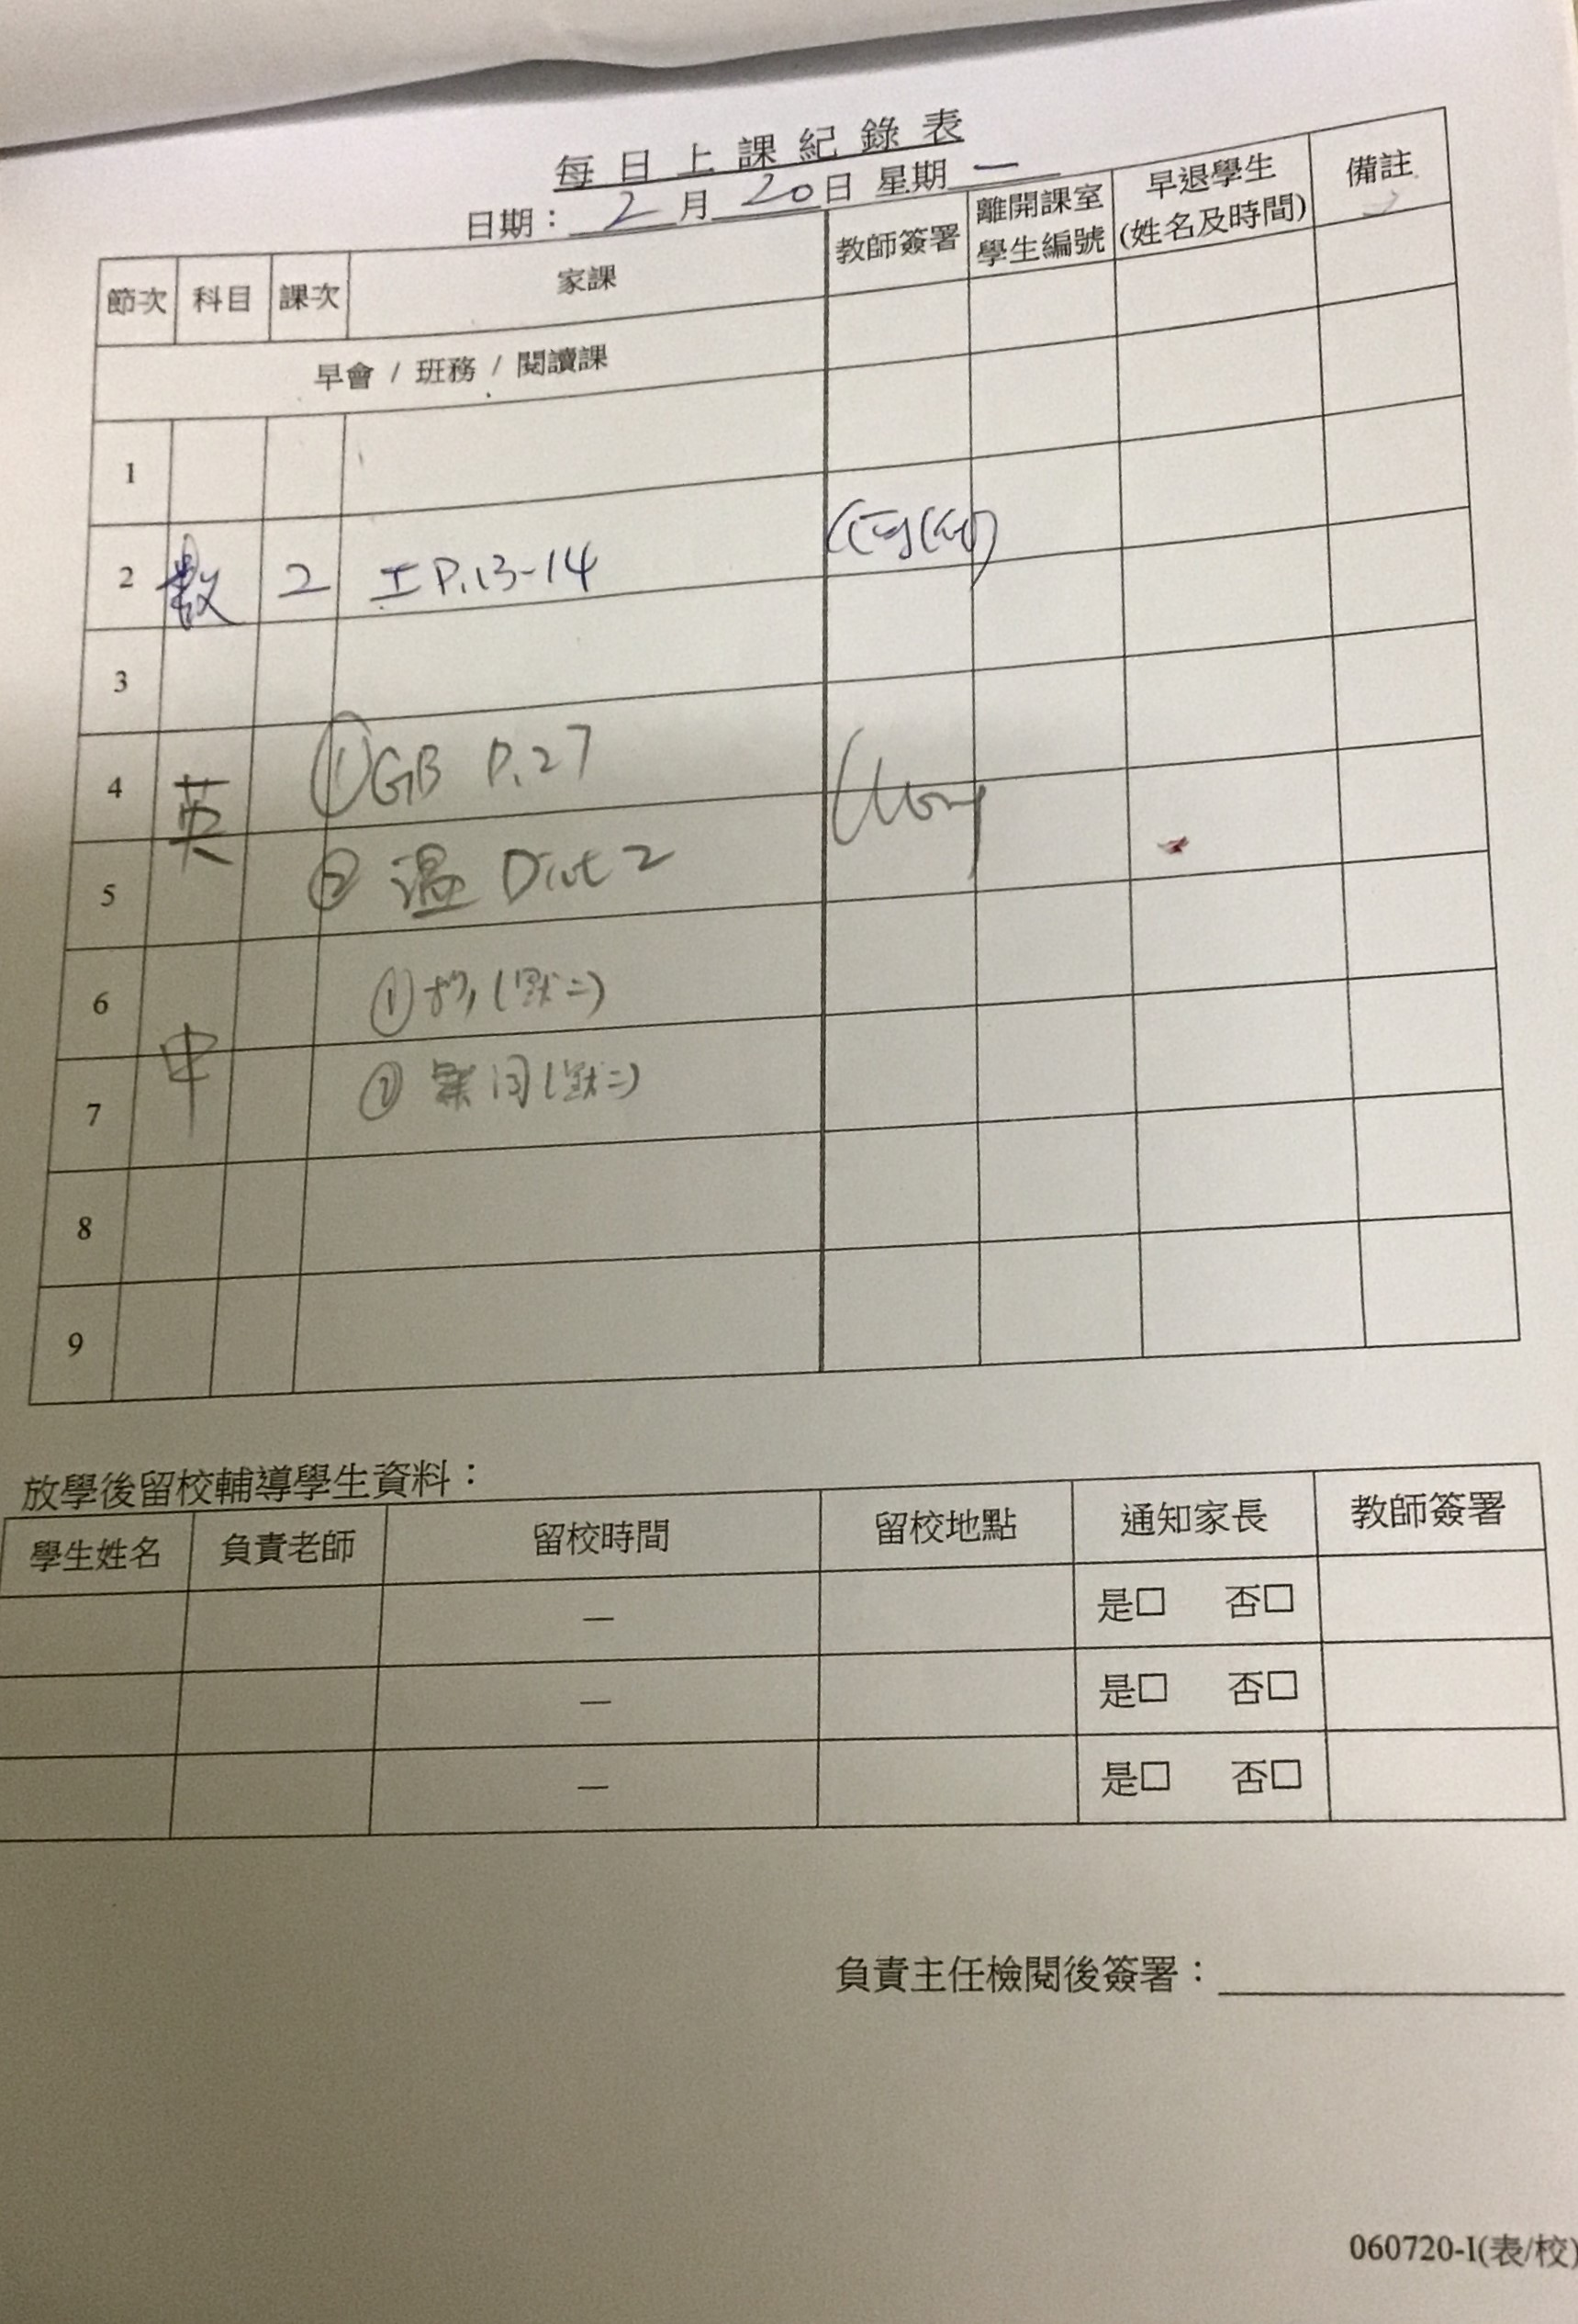 每日上課紀錄表
日期：2月20日 星期一
節次 科目 課次 家課 教師簽署 離開課室學生編號 早退學生(姓名及時間) 備註
早會 / 班務 / 閱讀課
1
2 數 2 工 P.13-14
3
4 英 ①GB P.27
5 ② 溫 Dict 2
6 中 ① 抄(默二)
7 ② (默二)
8
9
放學後留校輔導學生資料：
學生姓名 負責老師 留校時間 留校地點 通知家長 教師簽署
— 是□ 否□
— 是□ 否□
— 是□ 否□
負責主任檢閱後簽署：
060720-I(表/校)